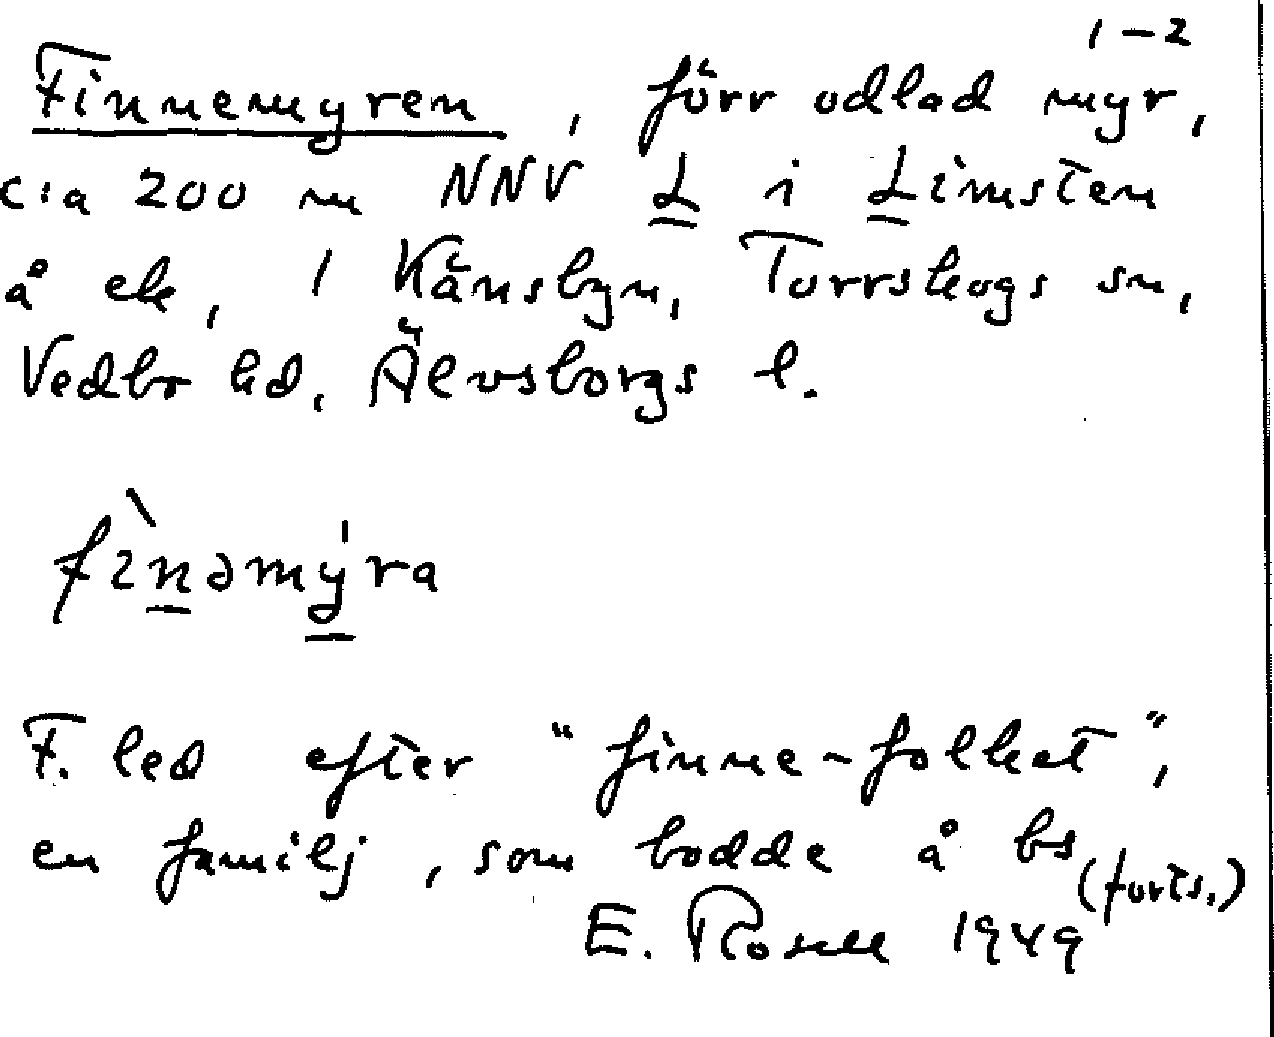 1-2
Finnemyren, förr odlad myr,
cia 200 m NNV L i Limsten
å ek, 1 Känsbyn, Torrskogs sn,
Vedbo hd, Älvsborgs l.
fìnəmy̍ra
F. led efter "finne-folket",
en familj, som bodde å bs
(forts.)
E. Rosell 1949